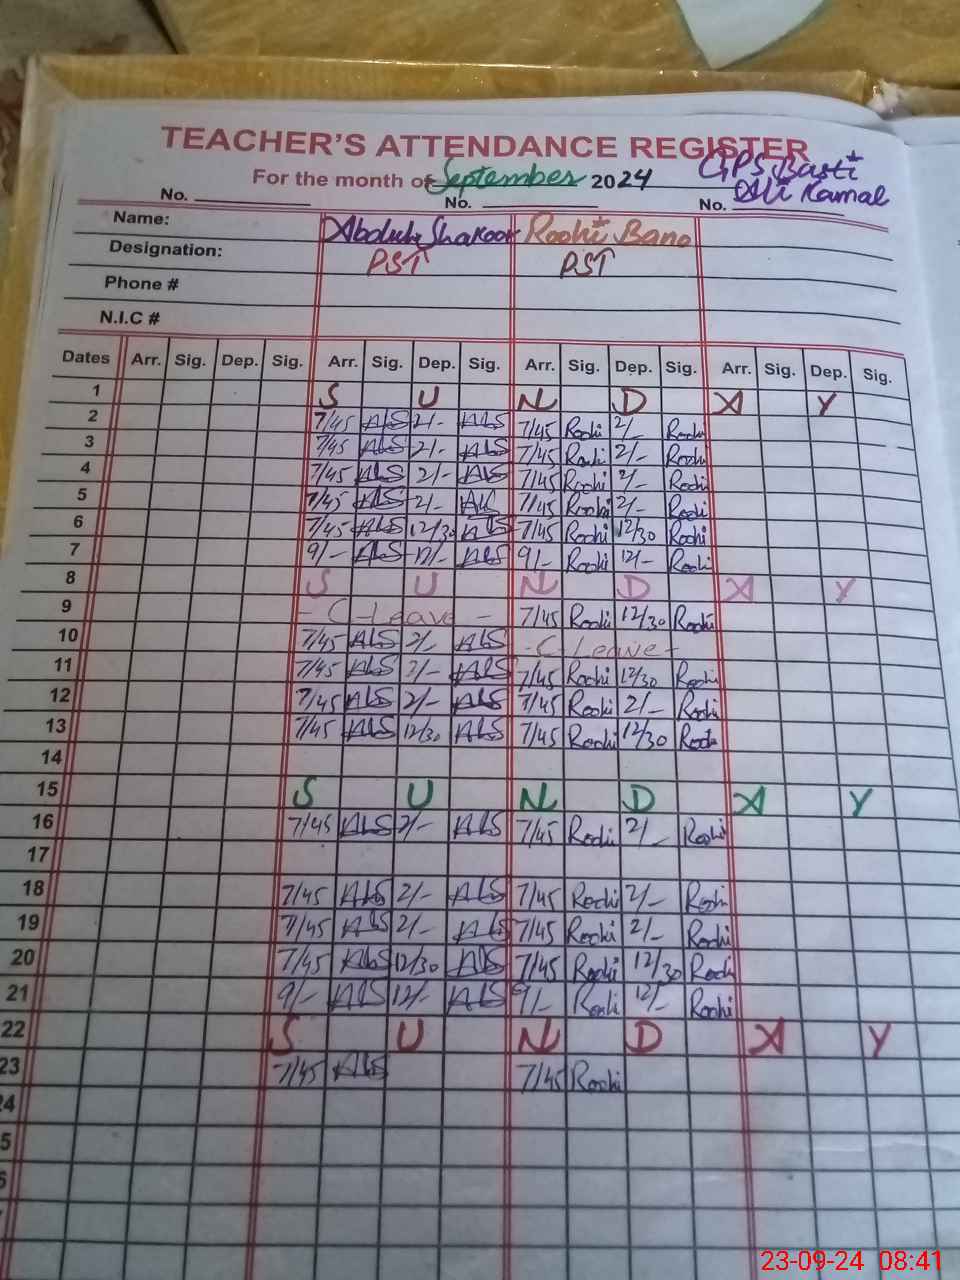 TEACHER'S ATTENDANCE REGISTER
For the month of September 2024 GPS Basti
Ali Kamal
No. No. No.
Name: Abdul Shakoor Roohi Bano
Designation: PST PST
Phone #
N.I.C #
Dates Arr. Sig. Dep. Sig. Arr. Sig. Dep. Sig. Arr. Sig. Dep. Sig. Arr. Sig. Dep. Sig.
1 S U N D A Y
2 7/45 ALS 2/- ALS 7/45 Roohi 2/- Roohi
3 7/45 ALS 2/- ALS 7/45 Roohi 2/- Roohi
4 7/45 ALS 2/- ALS 7/45 Roohi 2/- Roohi
5 7/45 ALS 2/- ALS 7/45 Roohi 2/- Roohi
6 7/45 ALS 12/30 ALS 7/45 Roohi 12/30 Roohi
7 9/- ALS 12/- ALS 9/- Roohi 12/- Roohi
8 S U N D A Y
9 - C-Leave - 7/45 Roohi 12/30 Roohi
10 7/45 ALS 2/- ALS - C-Leave -
11 7/45 ALS 2/- ALS 7/45 Roohi 12/30 Roohi
12 7/45 ALS 2/- ALS 7/45 Roohi 2/- Roohi
13 7/45 ALS 12/30 ALS 7/45 Roohi 12/30 Roohi
14
15 S U N D A Y
16 7/45 ALS 2/- ALS 7/45 Roohi 2/- Roohi
17
18 7/45 ALS 2/- ALS 7/45 Roohi 2/- Roohi
19 7/45 ALS 2/- ALS 7/45 Roohi 2/- Roohi
20 7/45 ALS 12/30 ALS 7/45 Roohi 12/30 Roohi
21 9/- ALS 12/- ALS 9/- Roohi 12/- Roohi
22 S U N D A Y
23 7/45 ALS 7/45 Roohi
24
5
6
23-09-24 08:41